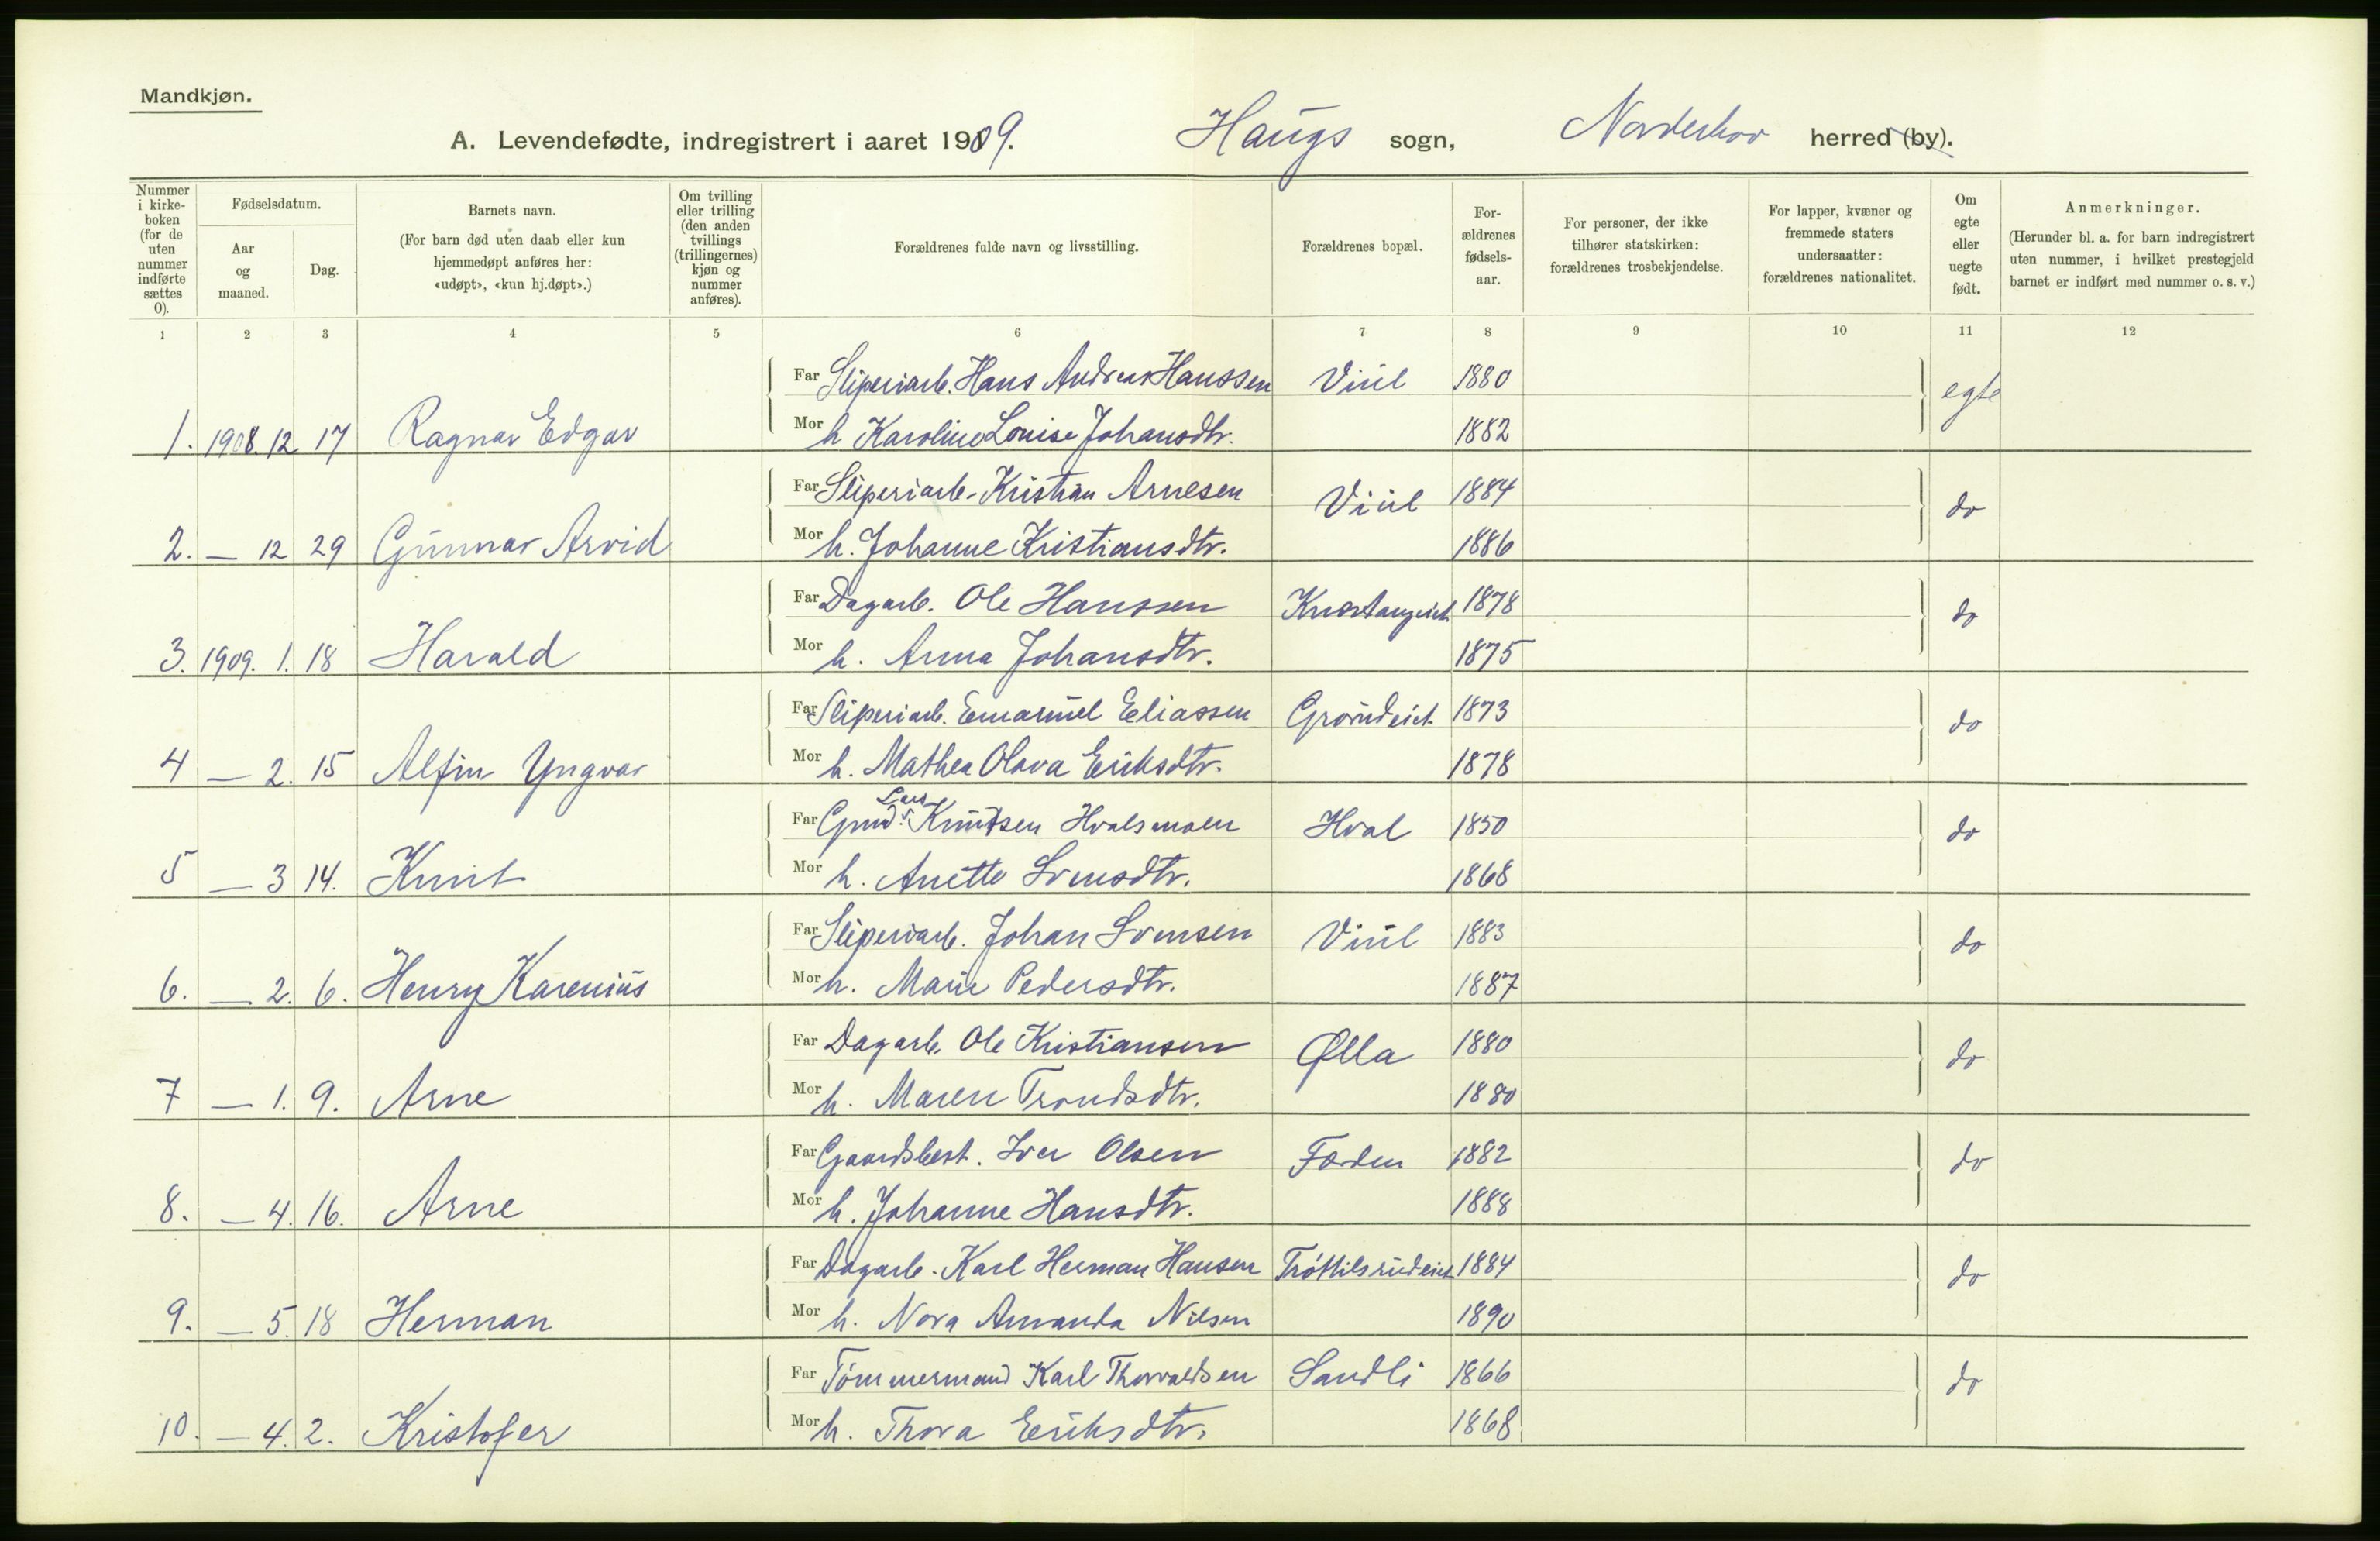 Mandkjøn.
A. Levendefødte, indregistrert i aaret 1909. Haugs sogn, Norderhov herred (by).
Nummer i kirkeboken (for de uten nummer indførte sættes 0).
Fødselsdatum.
Aar og maaned.
Dag.
Barnets navn.
(For barn død uten daab eller kun hjemmedøpt anføres her: «udøpt», «kun hj.døpt».)
Om tvilling eller trilling (den anden tvillings (trillingernes) kjøn og nummer anføres).
Forældrenes fulde navn og livsstilling.
Forældrenes bopæl.
Forældrenes fødselsaar.
For personer, der ikke tilhører statskirken: forældrenes trosbekjendelse.
For lapper, kvæner og fremmede staters undersaatter: forældrenes nationalitet.
Om egte eller uegte født.
Anmerkninger.
(Herunder bl. a. for barn indregistrert uten nummer, i hvilket prestegjeld barnet er indført med nummer o. s. v.)
1 2 3 4 5 6 7 8 9 10 11 12
Far Sliperiarb. Hans Andreas Hanssen Viul 1880 egte
1. 1908. 12 17 Ragnar Edgar Mor h Karoline Louise Johansdtr. 1882
Far Sliperiarb. Kristian Arnesen Viul 1884 do
2. — 12 29 Gunnar Arvid Mor h. Johanne Kristiansdtr. 1886
Far Dagarb. Ole Hanssen 1878 do
3. 1909. 1. 18 Harald Mor h. Anna Johansdtr. 1875
Far Sliperiarb. Emanuel Eliassen Grøndeiet 1873 do
4 — 2. 15 Alfin Yngvar Mor h. Mathea Olava Eriksdtr. 1878
Far Grmd. Lars Knudsen Hvalsmoen Hval 1850 do
5 — 3 14. Knut Mor h. Anette Svensdtr. 1868
Far Sliperiarb. Johan Svensen Viul 1883 do
6. — 2. 6. Henry Karenius Mor h. Marie Pedersdtr. 1887
Far Dagarb. Ole Kristiansen Ølla 1880 do
7 — 1. 9. Arne Mor h. Maren Trondsdtr. 1880
Far Gaardsbest. Iver Olsen Færden 1882 do
8. — 4. 16. Arne Mor h. Johanne Hansdtr. 1888
Far Dagarb. Karl Herman Hansen Trøttilsrudeiet 1884 do
9. — 5. 18 Herman Mor h. Nora Amanda Nilsen 1890
Far Tømmermand Karl Thorvaldsen Sandli 1866 do
10. — 4. 2. Kristofer Mor h. Thora Eriksdtr. 1868